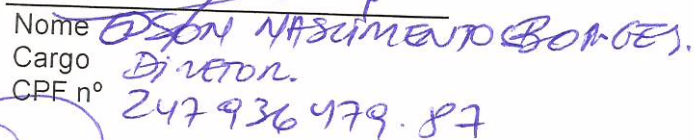 Nome OSON NASCIMENTO BORGES.
Cargo DIRETOR.
CPF nº 247936479.87